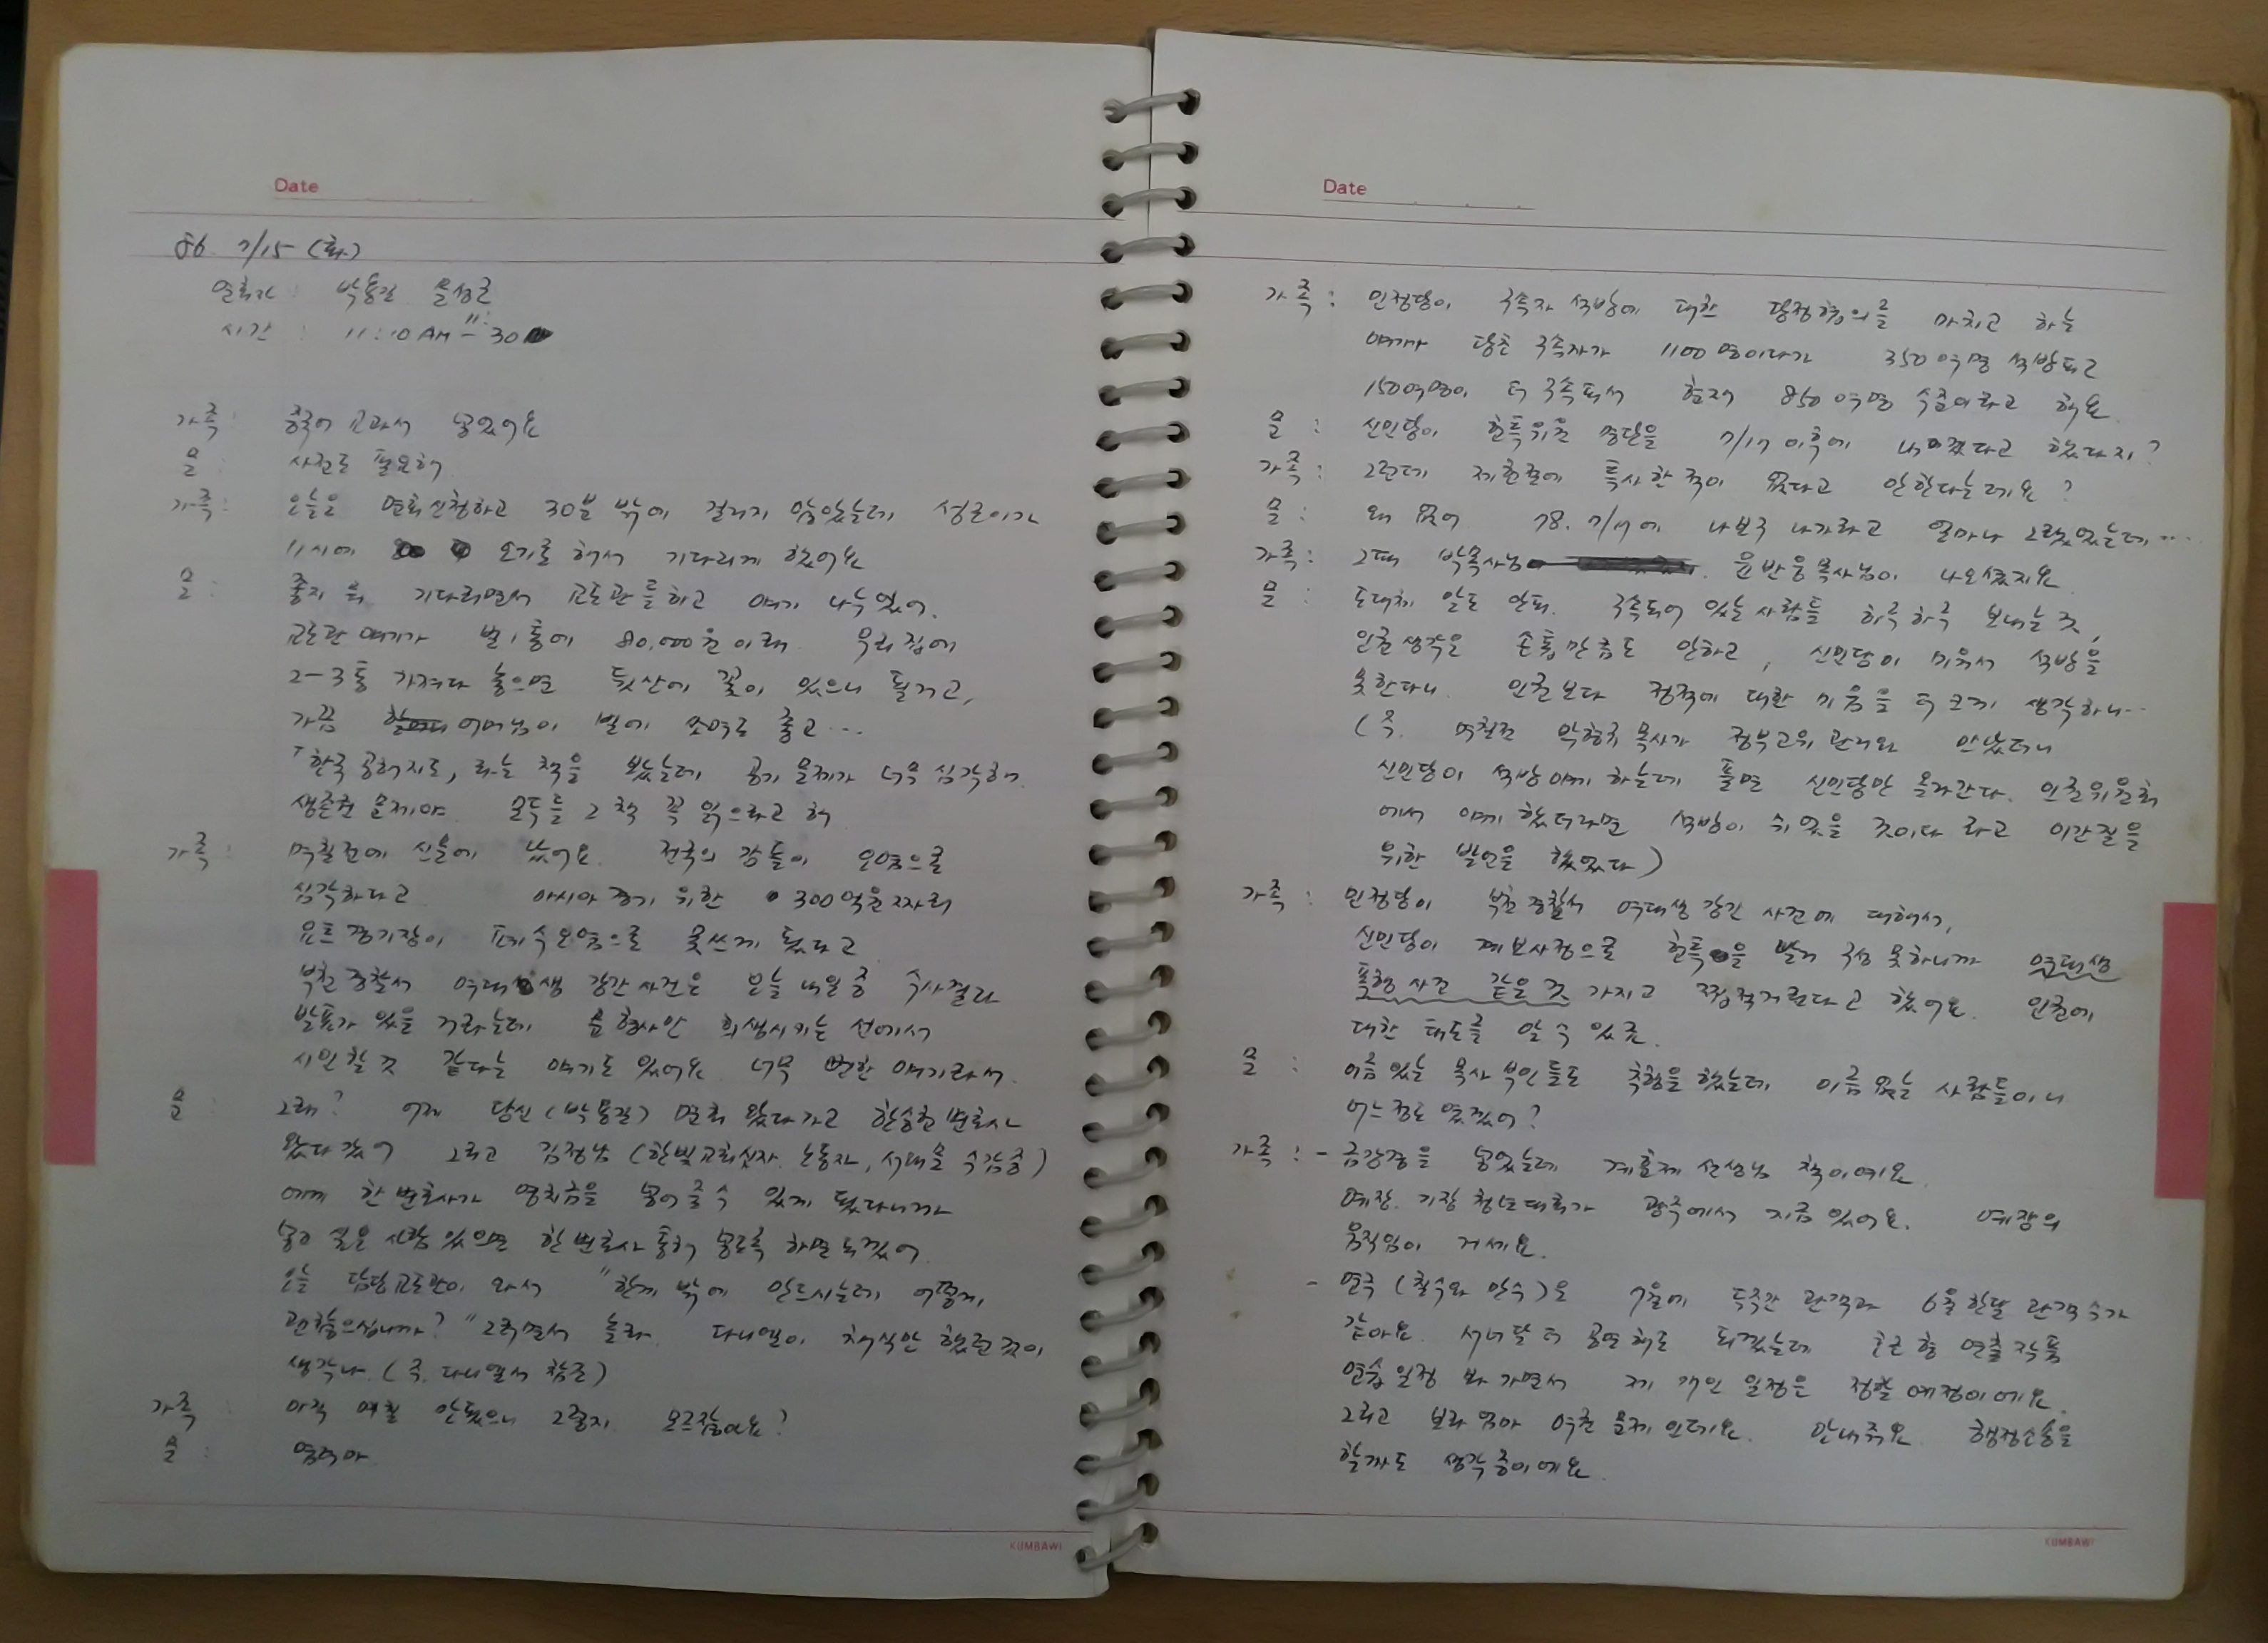 Date
86. 7/15 (화)
면회자 : 박용길 문성근
시간 : 11:10 AM - 11:30
가족 : 중국어 교과서 넣었어요
문 : 사전도 필요해.
가족 : 오늘은 면회신청하고 30분 밖에 걸리지 않았는데 성근이가
11시에 오기로 해서 기다리게 했어요
문 : 좋지 뭐. 기다리면서 교도관들하고 얘기 나누었어.
교도관 얘기가 벌 1통에 80,000원 이래. 우리 집에
2-3통 가져다 놓으면 뒷산에 꽃이 있으니 될거고,
가끔 어머님이 벌에 쏘여도 좋고...
「한국공해지도」라는 책을 봤는데 공기 문제가 너무 심각해.
생존권 문제야. 모두들 그 책 꼭 읽으라고 해
가족 : 며칠전에 신문에 났어요. 전국의 강들이 오염으로
심각하다고 아시아 경기 위한 300억원 짜리
요트 경기장이 폐수오염으로 못쓰게 됐다고
부천 경찰서 여대생 강간 사건은 오늘 내일 중 수사결과
발표가 있을 거라는데 문 형사만 희생시키는 선에서
시인할 것 같다는 얘기도 있어요. 너무 뻔한 얘기라서.
문 : 그래? 어제 당신(박용길) 면회 왔다가고 한승헌 변호사
왔다 갔어 그리고 김정남 (한빛교회신자. 노동자, 서대문 수감중)
에게 한 변호사가 영치금을 넣어줄 수 있게 됐다니까
넣고 싶은 사람 있으면 한 변호사 통해 넣도록 하면 되겠어.
오늘 담당교도관이 와서 "한끼 밖에 안드시는데 어떻게,
괜찮으십니까?" 그러면서 놀라. 다니엘이 채식만 했던 것이
생각나. (주. 다니엘서 참조)
가족 : 아직 며칠 안됐으니 그렇지 모르잖아요?
문 : 염려마.
KUMBAWI
Date
가족 : 민정당이 구속자 석방에 대한 당정협의를 마치고 하는
얘기가 당초 구속자가 1100명이다가 350여명 석방되고
150여명이 더 구속돼서 현재 850여명 수준이라고 해요.
문 : 신민당이 헌특위원 명단을 7/17 이후에 내겠다고 했다지?
가족 : 그런데 제헌절에 특사한 적이 없다고 안한다는데요?
문 : 왜 없어 78. 7/17에 나보고 나가라고 얼마나 그랬었는데....
가족 : 그때 박목사님 윤반웅목사님이 나오셨지요.
문 : 도대체 말도 안돼. 구속되어 있는 사람들 하루하루 보내는 것,
인권생각은 손톱만큼도 안하고, 신민당이 미워서 석방을
못한다니. 인권보다 정적에 대한 미움을 더 크게 생각하니...
(주. 며칠전 박형규 목사가 정부고위 관리와 만났더니
신민당이 석방 얘기 하는데 풀면 신민당만 올라간다. 인권위원회
에서 얘기했더라면 석방이 쉬었을 것이다 라고 이간질을
위한 발언을 했었다)
가족 : 민정당이 부천 경찰서 여대생 강간 사건에 대해서,
신민당이 계보사정으로 헌특을 빨리 구성 못하니까 여대생
폭행 사건 같은 것 가지고 찝적거린다고 했어요. 인권에
대한 태도를 알 수 있죠.
문 : 이름있는 목사 부인들도 추행을 했는데, 이름 없는 사람들이니
어느 정도 였겠어?
가족 : - 금강경을 넣었는데 선생님 책이예요.
예장. 기장 청년대회가 광주에서 지금 있어요. 예장의
움직임이 거세요.
- 연극 (칠수와 만수)은 7월에 두주간 관객과 6월 한달 관객 수가
같아요. 서너달 더 공연해도 되겠는데 호근 형 연출 작품
연습 일정 봐 가면서 제 개인 일정은 정할 예정이예요.
그리고 보라 엄마 여권 문제 인데요. 안내줘요. 행정소송을
할까도 생각중이예요.
KUMBAWI